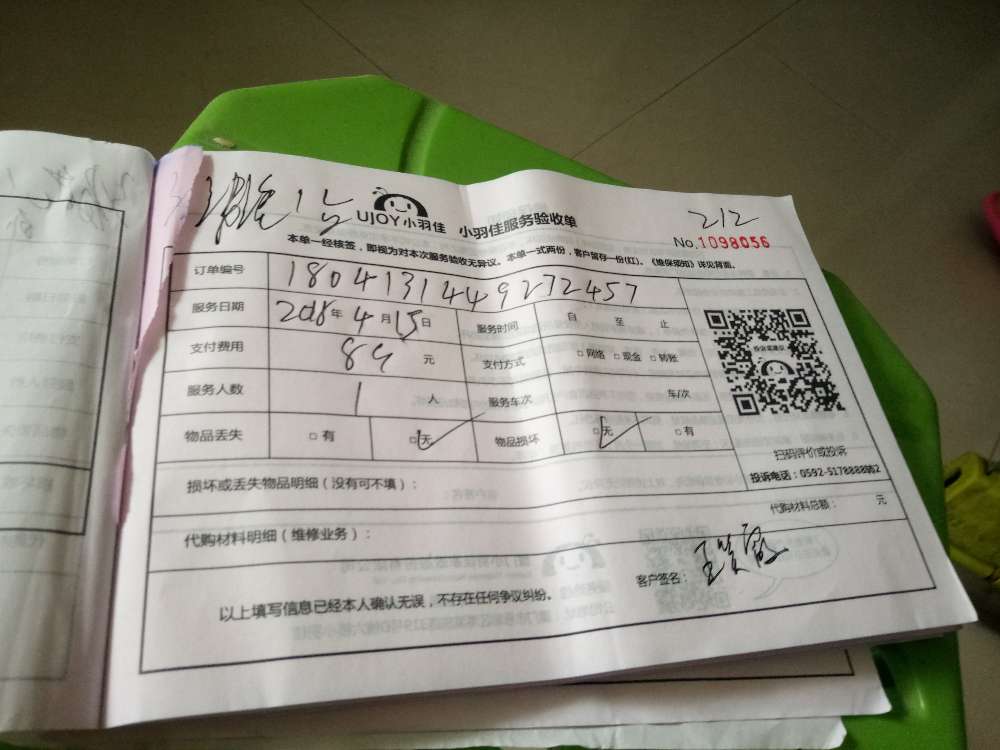 212
UJOY小羽佳 小羽佳服务验收单
No.1098056
本单一经核签，即视为对本次服务验收无异议。本单一式两份，客户留存一份(红)。《维保须知》详见背面。
订单编号 1804131449272457
服务日期 2018年4月15日 服务时间 自 至 止
支付费用 84 元 支付方式 □网络 □现金 □转账
服务人数 1 人 服务车次 车/次
物品丢失 □有 □无 物品损坏 □无 □有
扫码评价或投诉
投诉电话：0592-5178888转2
损坏或丢失物品明细（没有可不填）：
代购材料总额： 元
代购材料明细（维修业务）：
客户签名：
以上填写信息已经本人确认无误，不存在任何争议纠纷。